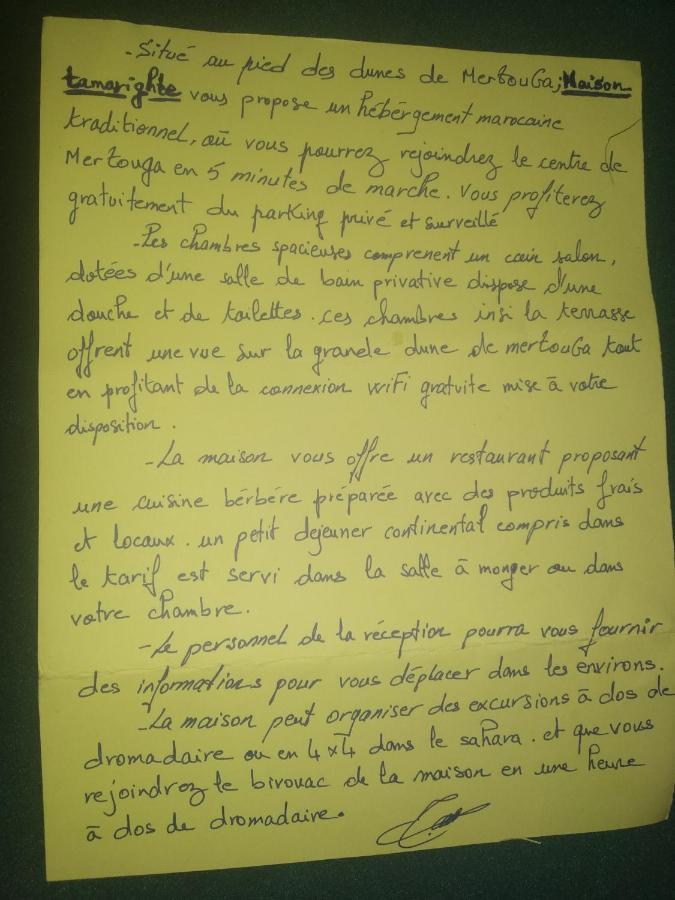 - Situé au pied des dunes de MertouGa; Maison
tamarighte vous propose un hébérgement marocaine
traditionnel, où vous pourrez rejoindrez le centre de
Mertouga en 5 minutes de marche. Vous profiterez
gratuitement du parking privé et surveillé
- Les chambres spacieuses comprenent un coin salon,
dotées d'une salle de bain privative dispose d'une
douche et de toilettes. ces chambres insi la terrasse
offrent une vue sur la grande dune de mertouGa tout
en profitant de la connexion wiFi gratuite mise à votre
disposition.
- La maison vous offre un restaurant proposant
une cuisine bérbére préparée avec des produits frais
et locaux. un petit dejeuner continental compris dans
le tarif est servi dans la salle à manger ou dans
votre chambre.
- Le personnel de la réception pourra vous fournir
des informations pour vous déplacer dans les environs.
- La maison peut organiser des excursions à dos de
dromadaire ou en 4x4 dans le sahara. et que vous
rejoindrez le bivouac de la maison en une heure
à dos de dromadaire.